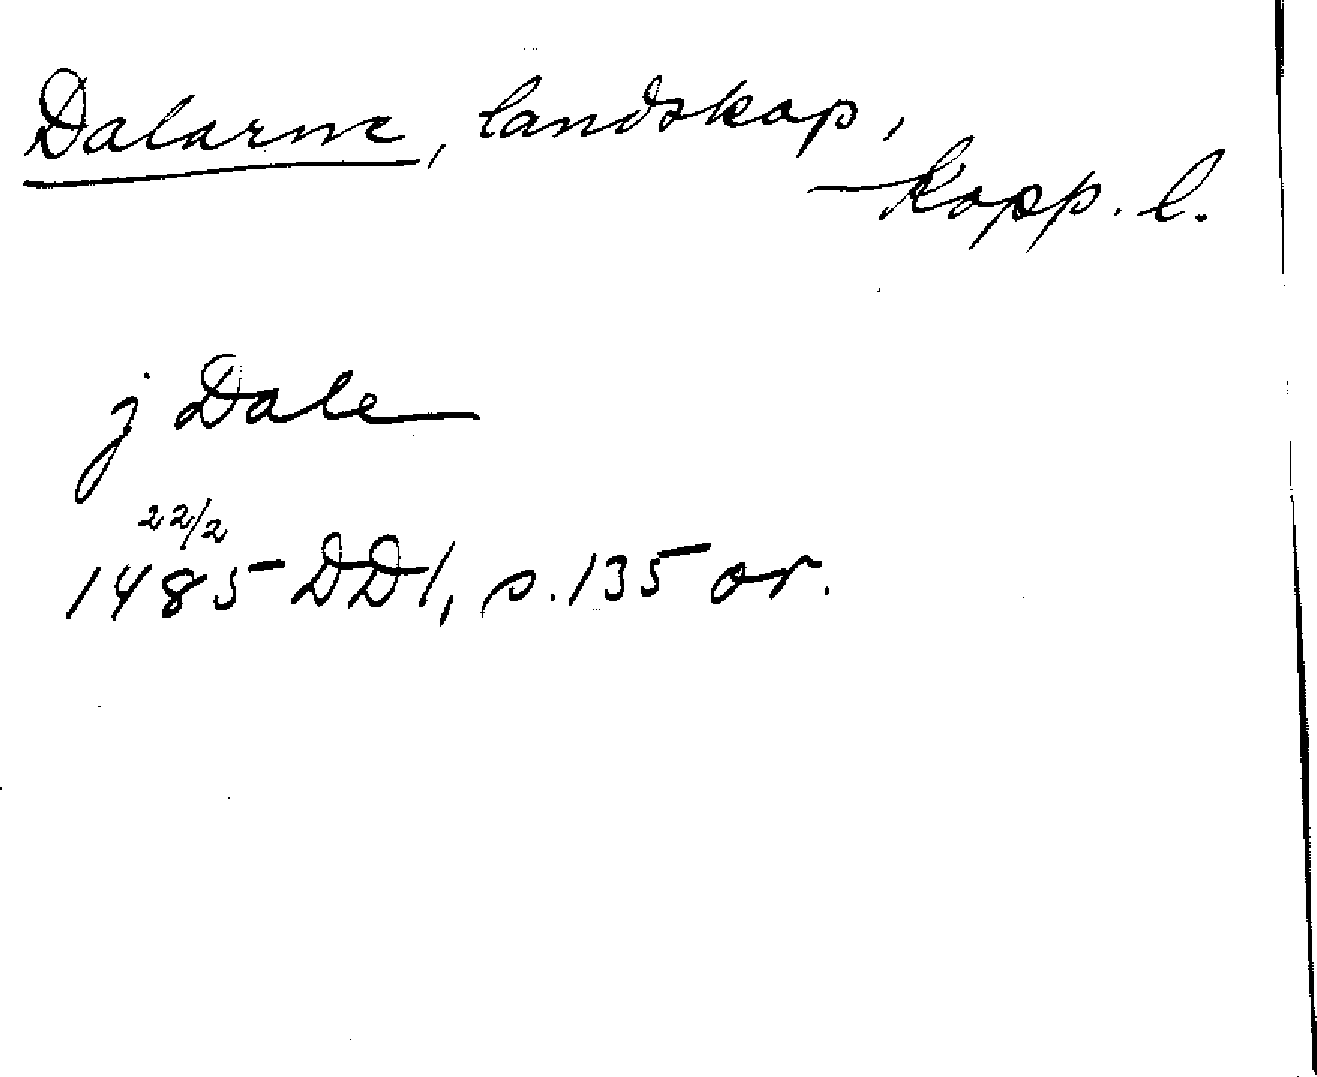 Dalarne, landskap,
Kopp. l.
j Dale
22/2
1485 DD1, s. 135 or.